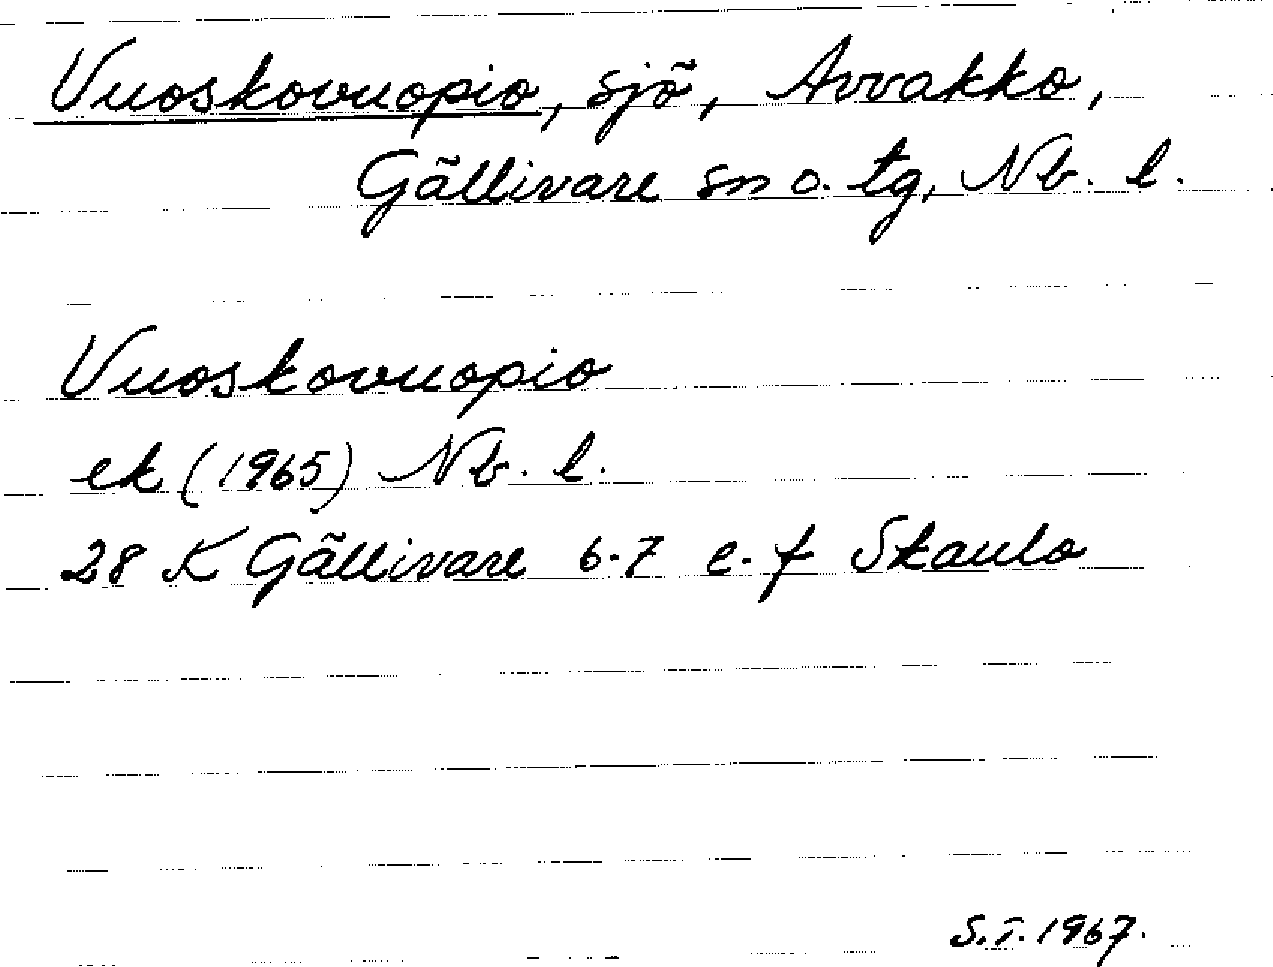 Vuoskovuopio, sjö, Avvakko,
Gällivare sn o. tg, Nb. l.
Vuoskovuopio
ek (1965) Nb. l.
28 K Gällivare 6-7 e-f Skaulo
S.T. 1967.